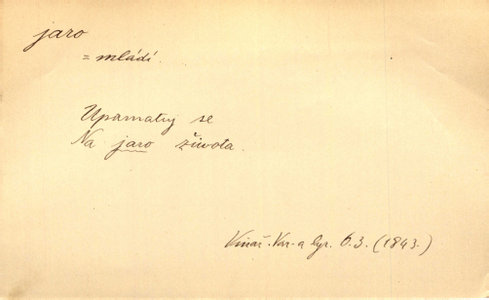 jaro
= mládí.
Upamatuj se
Na jaro života.
Vinař. Kv. a lyr. 63. (1843.)